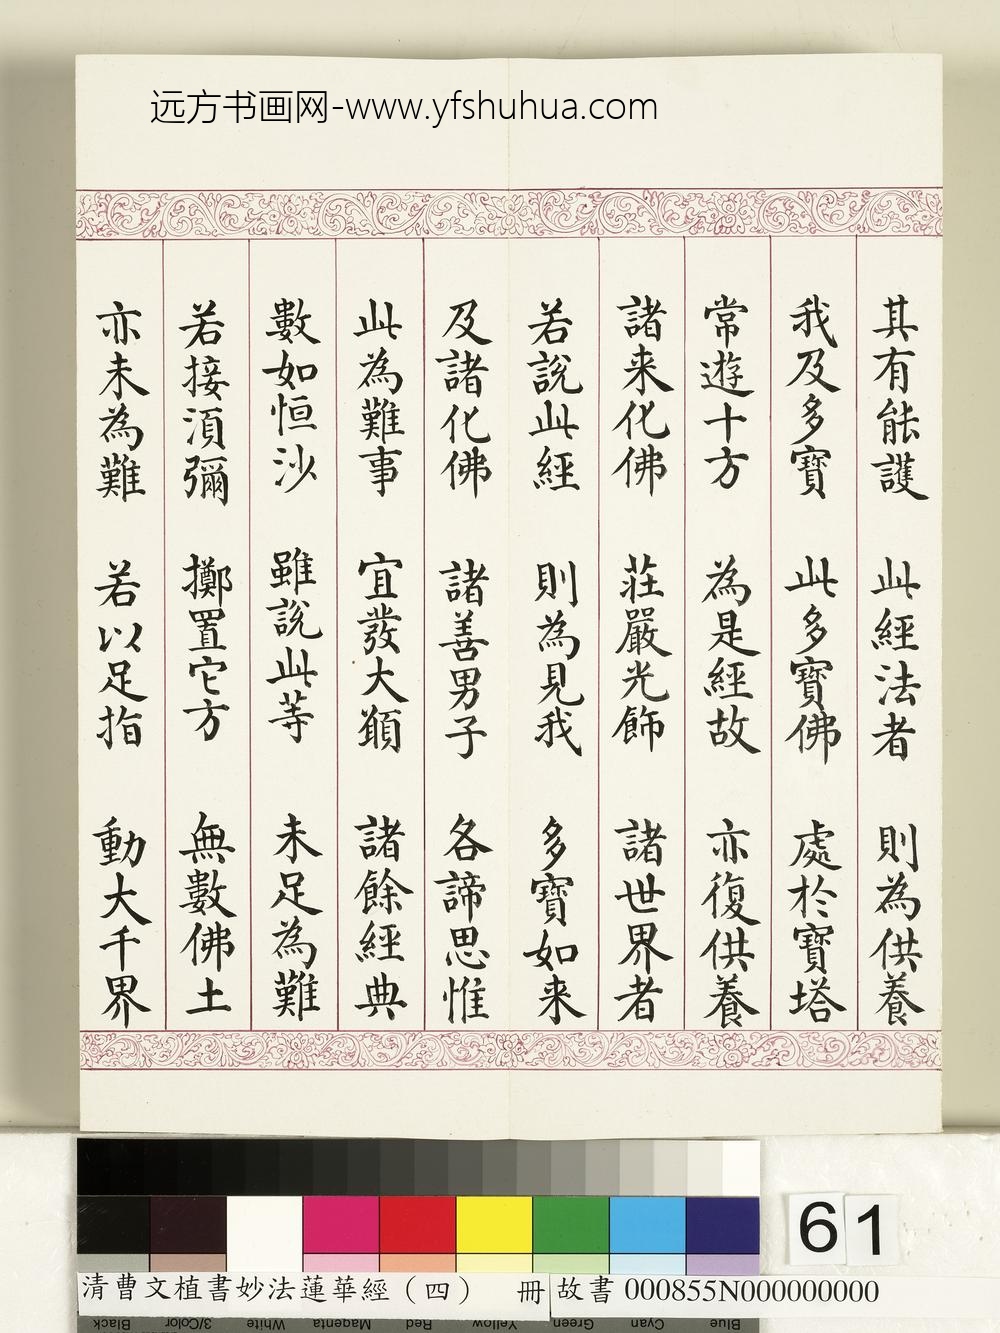 远方书画网-www.yfshuhua.com
其有能護 此經法者 則為供養
我及多寶 此多寶佛 處於寶塔
常遊十方 為是經故 亦復供養
諸来化佛 莊嚴光飾 諸世界者
若說此經 則為見我 多寶如来
及諸化佛 諸善男子 各諦思惟
此為難事 宜發大願 諸餘經典
數如恒沙 雖說此等 未足為難
若接須彌 擲置它方 無數佛土
亦未為難 若以足指 動大千界
61
清曹文植書妙法蓮華經(四) 冊 故書 000855N000000000
Black 3/Color White Magenta Red Yellow Green Cyan Blue